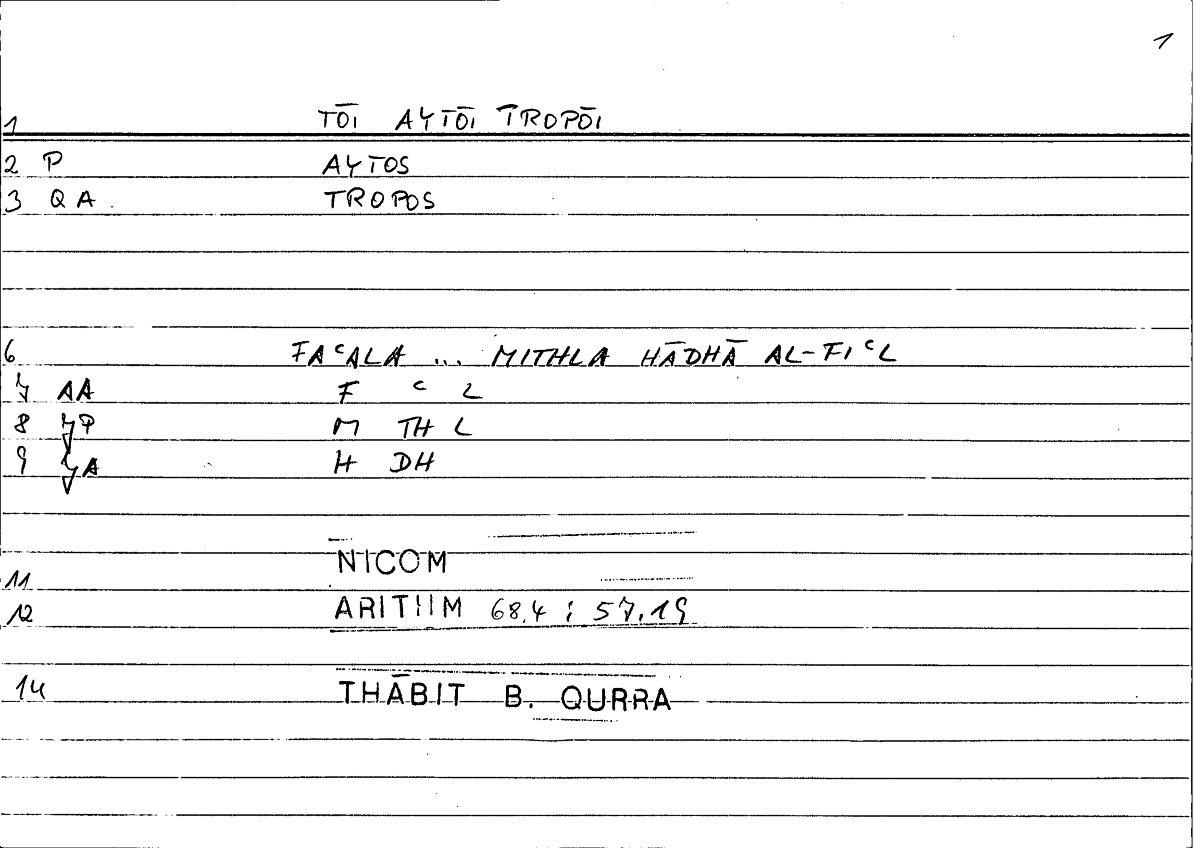 1
1 TŌI AYTŌI TROPŌI
2 P AYTOS
3 QA TROPOS
6 FAᶜALA ... MITHLA HĀDHĀ AL-FIᶜL
7 AA F ᶜ L
8 P M TH L
9 A H DH
11 NICOM
12 ARITHM 68,4 ; 57,19
14 THĀBIT B. QURRA